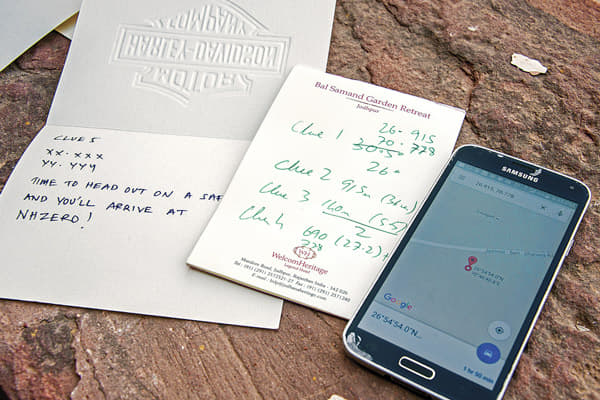 MOTOR
HARLEY-DAVIDSON
COMPANY
CLUE 5
XX.XXX
YY.YYY
TIME TO HEAD OUT ON A SAF
AND YOU'LL ARRIVE AT
NHZERO!
Bal Samand Garden Retreat
Jodhpur
26.915
Clue 1
70.778
26.
Clue 2 915m
Clue 3 160m (5.5)
2
Clue 4 690 (27.2)+
778
WH
WelcomHeritage
Legend Hotel
Mandore Road, Jodhpur, Rajasthan, India - 342 026
SAMSUNG
26.915, 70.778
26°54'54.0"N
Google
26°54'54.0"N...
1 hr 50 min